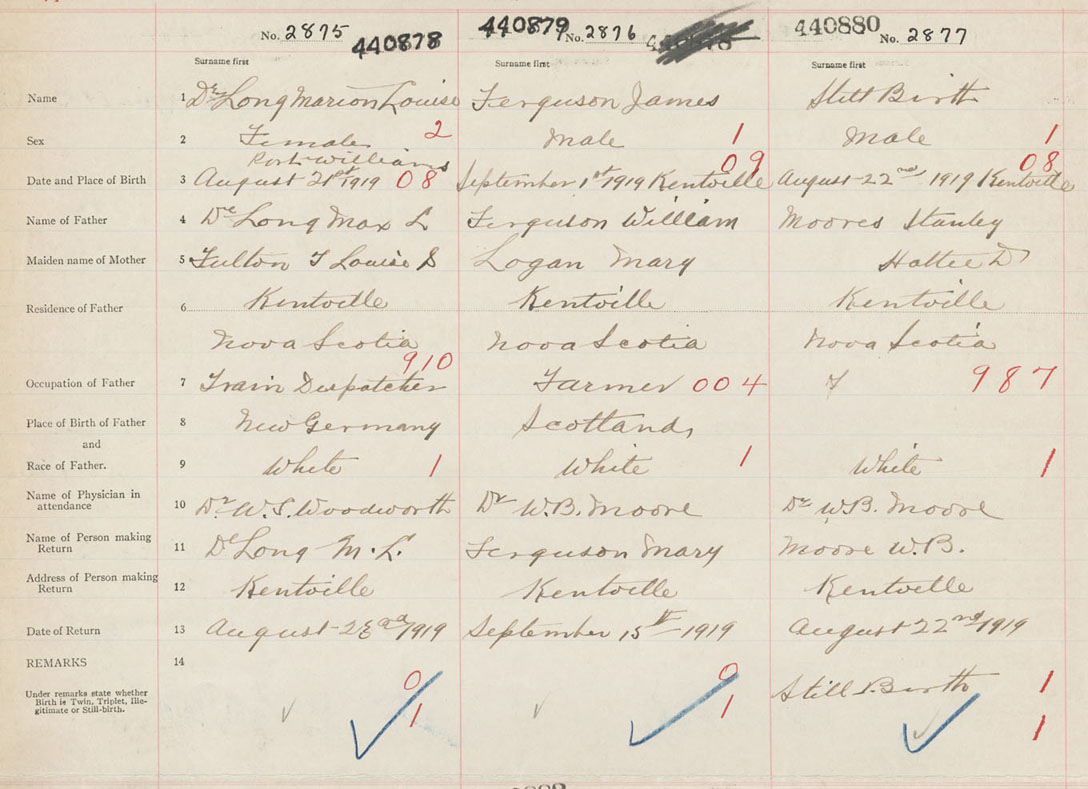 No. 2875 440878 440879 No. 2876 440880 No. 2877
Surname first Surname first Surname first
Name 1 DeLong Marion Louise Ferguson James Still Birth
Sex 2 Female 2 Male 1 Male 1
Port Williams 09 08
Date and Place of Birth 3 August 21st 1919 08 September 1st 1919 Kentville August 22nd 1919 Kentville
Name of Father 4 De Long Max L Ferguson William Moores Stanley
Maiden name of Mother 5 Fulton T Louise S Logan Mary Hattee D
Residence of Father 6 Kentville Kentville Kentville
Nova Scotia Nova Scotia Nova Scotia
910
Occupation of Father 7 Train Dispatcher Farmer 004 987
Place of Birth of Father 8 New Germany Scotland
and
Race of Father. 9 White 1 White 1 White 1
Name of Physician in
attendance 10 Dr W.S. Woodworth Dr W.B. Moore Dr W.B. Moore
Name of Person making
Return 11 DeLong M.L. Ferguson Mary Moore W.B.
Address of Person making
Return 12 Kentville Kentville Kentville
Date of Return 13 August 1919 September 15th 1919 August 22nd 1919
REMARKS 14
Under remarks state whether
Birth is Twin, Triplet, Ille-
gitimate or Still-birth.
0 0 Still Birth 1
1 1 1